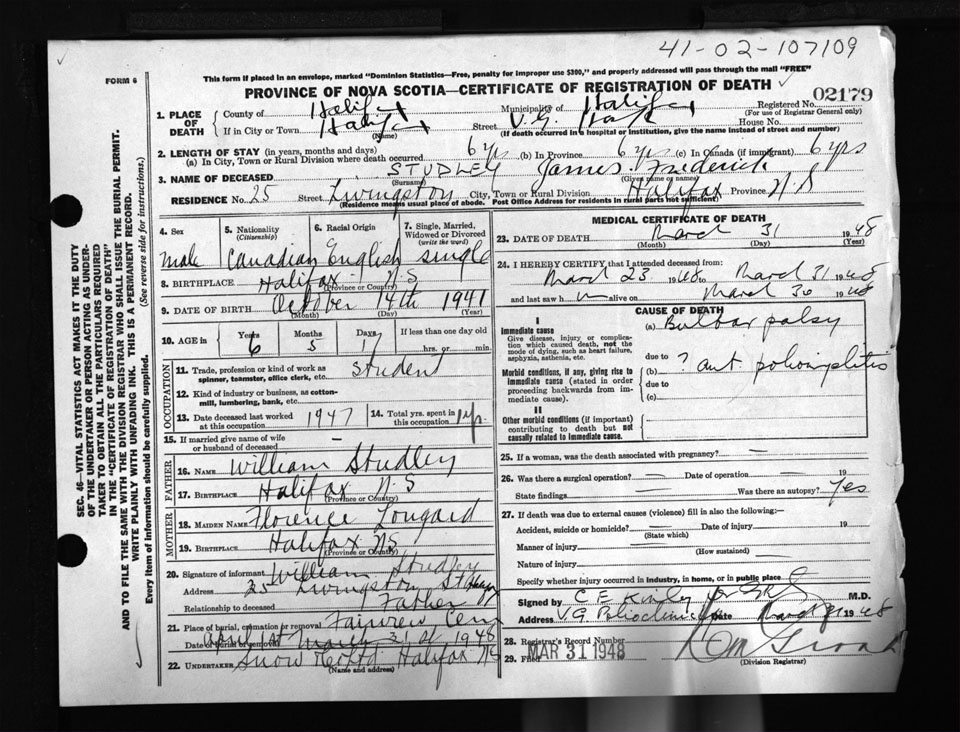 41-02-107109
FORM 6
This form if placed in an envelope, marked "Dominion Statistics—Free, penalty for improper use $300," and properly addressed will pass through the mail "FREE"
PROVINCE OF NOVA SCOTIA—CERTIFICATE OF REGISTRATION OF DEATH
02179
1. PLACE OF DEATH
County of Halifax Municipality of Halifax Registered No.
(For use of Registrar General only)
If in City or Town Halifax Street V.G. House No.
(Name) (If death occurred in a hospital or institution, give the name instead of street and number)
2. LENGTH OF STAY (in years, months and days)
(a) In City, Town or Rural Division where death occurred 6 yrs (b) In Province 6 yrs (c) In Canada (if immigrant) 6 yrs
3. NAME OF DECEASED STUDLEY James Frederick
(Surname) (Given name or names)
RESIDENCE No. 25 Street Livingston City, Town or Rural Division Halifax Province N.S
(Residence means usual place of abode. Post Office Address for residents in rural parts not sufficient)
4. Sex
male
5. Nationality
(Citizenship)
Canadian
6. Racial Origin
English
7. Single, Married, Widowed or Divorced
(write the word)
single
8. BIRTHPLACE Halifax N.S
(Province or Country)
9. DATE OF BIRTH October 14th 1941
(Month) (Day) (Year)
10. AGE Years Months Days If less than one day old
6 5 17 hrs. or min.
OCCUPATION
11. Trade, profession or kind of work as spinner, teamster, office clerk, etc. Student
12. Kind of industry or business, as cotton-mill, lumbering, bank, etc.
13. Date deceased last worked at this occupation 1947
14. Total yrs. spent in this occupation 1 yr.
15. If married give name of wife or husband of deceased —
FATHER
16. NAME William Studley
17. BIRTHPLACE Halifax N.S
(Province or Country)
MOTHER
18. MAIDEN NAME Florence Lougard
19. BIRTHPLACE Halifax NS
(Province or Country)
20. Signature of informant William Studley
Address 25 Livingston St
Relationship to deceased Father
21. Place of burial, cremation or removal Fairview Cem
Date of burial or removal April 1st March 31st 1948
22. UNDERTAKER Snow & Co Ltd Halifax NS
(Name and address)
MEDICAL CERTIFICATE OF DEATH
23. DATE OF DEATH March 31 1948
(Month) (Day) (Year)
24. I HEREBY CERTIFY, that I attended deceased from:
March 23 1948 to March 31 1948
and last saw h m alive on March 30 1948
CAUSE OF DEATH
I
Immediate cause
Give disease, injury or complication which caused death, not the mode of dying, such as heart failure, asphyxia, asthenia, etc.
(a) Bulbar palsy
due to
Morbid conditions, if any, giving rise to immediate cause (stated in order proceeding backwards from immediate cause).
(b) ? ant. poliomyelitis
due to
(c)
II
Other morbid conditions (if important) contributing to death but not causally related to immediate cause.
25. If a woman, was the death associated with pregnancy? —
26. Was there a surgical operation? — Date of operation — 19
State findings — Was there an autopsy? Yes
27. If death was due to external causes (violence) fill in also the following:—
Accident, suicide or homicide? — Date of injury 19
(State which)
Manner of injury
(How sustained)
Nature of injury
Specify whether injury occurred in industry, in home, or in public place
Signed by C E M.D.
Address V.G. Polioclinic Date March 31 1948
28. Registrar's Record Number
29. Filed MAR 31 1948
(Division Registrar)
SEC. 46—VITAL STATISTICS ACT MAKES IT THE DUTY
OF THE UNDERTAKER OR PERSON ACTING AS UNDER-
TAKER TO OBTAIN ALL THE PARTICULARS REQUIRED
IN THE "CERTIFICATE OF REGISTRATION OF DEATH"
AND TO FILE THE SAME WITH THE DIVISION REGISTRAR WHO SHALL ISSUE THE BURIAL PERMIT.
WRITE PLAINLY WITH UNFADING INK. THIS IS A PERMANENT RECORD.
Every item of information should be carefully supplied. (See reverse side for instructions.)